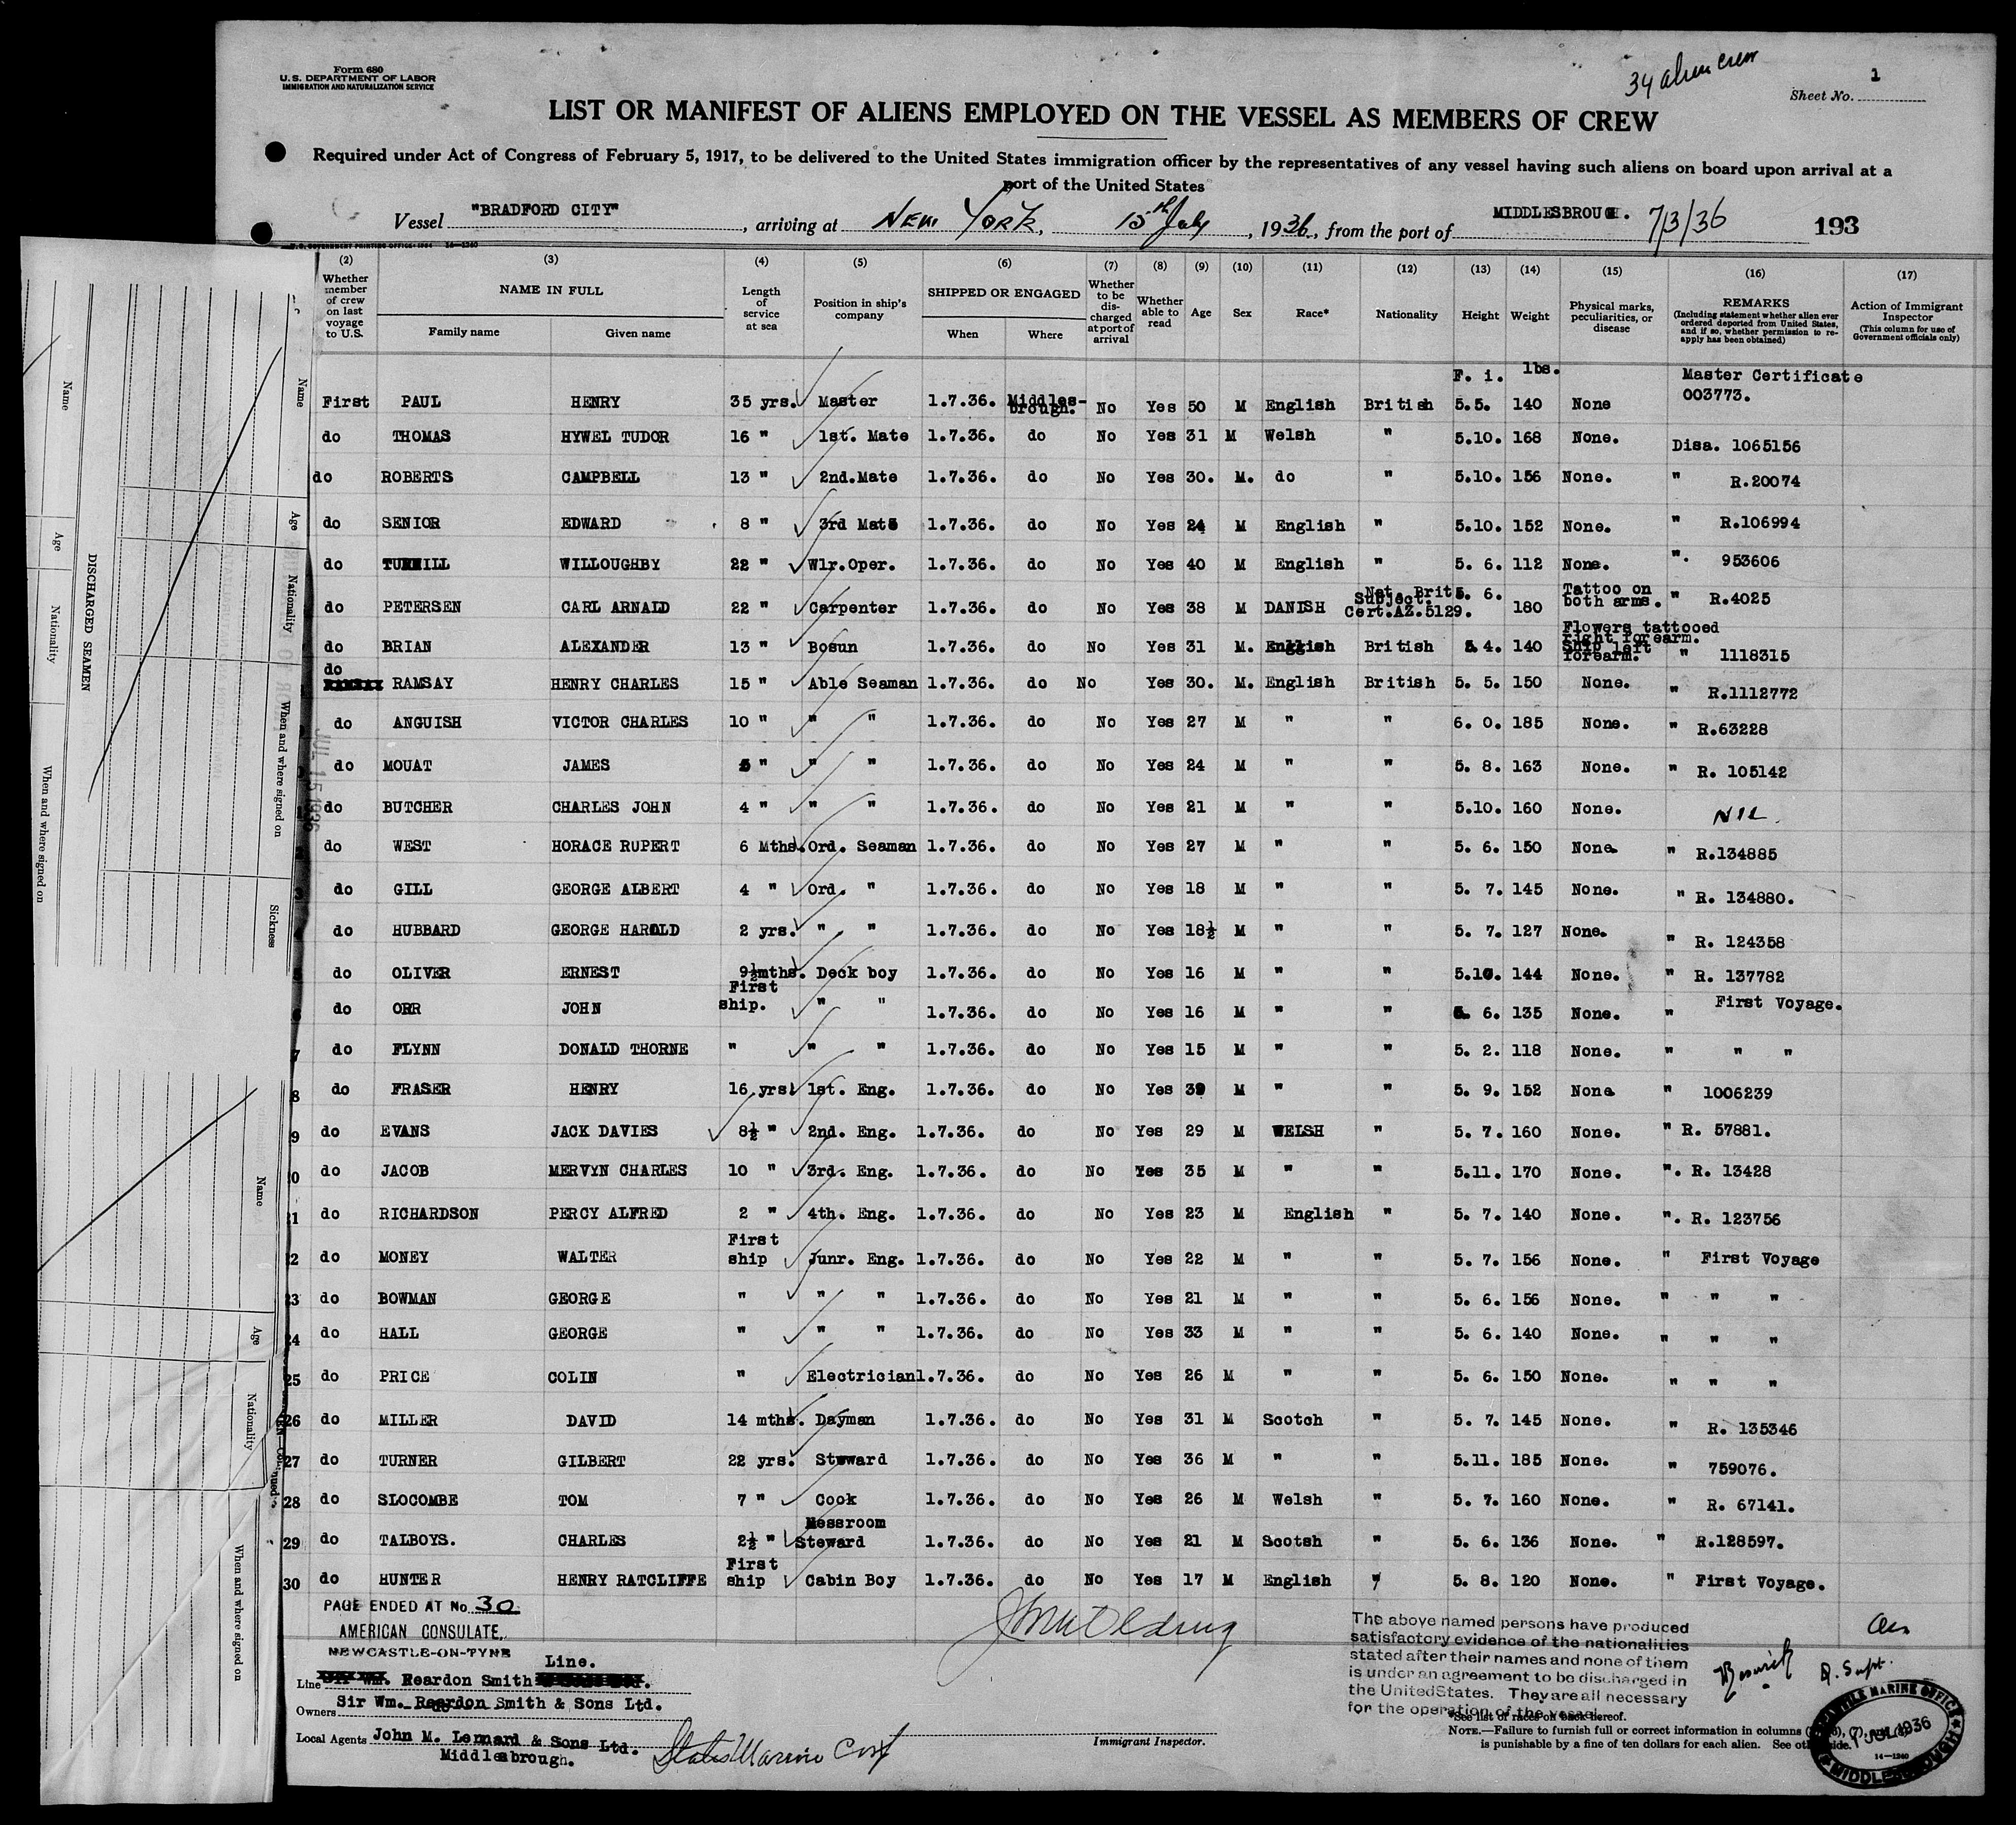 Form 680
U.S. DEPARTMENT OF LABOR
IMMIGRATION AND NATURALIZATION SERVICE
34 alien crew
Sheet No. 1
LIST OR MANIFEST OF ALIENS EMPLOYED ON THE VESSEL AS MEMBERS OF CREW
Required under Act of Congress of February 5, 1917, to be delivered to the United States immigration officer by the representatives of any vessel having such aliens on board upon arrival at a
port of the United States
Vessel "BRADFORD CITY", arriving at New York, 15th July, 1936, from the port of MIDDLESBROUGH. 7/3/36 193
(2) (3) (4) (5) (6) (7) (8) (9) (10) (11) (12) (13) (14) (15) (16) (17)
Whether member of crew on last voyage to U.S. NAME IN FULL Family name Given name Length of service at sea Position in ship's company SHIPPED OR ENGAGED When Where Whether to be discharged at port of arrival Whether able to read Age Sex Race* Nationality Height Weight Physical marks, peculiarities, or disease REMARKS (Including statement whether alien ever ordered deported from United States, and if so, whether permission to reapply has been obtained) Action of Immigrant Inspector (This column for use of Government officials only)
F. i. lbs.
First PAUL HENRY 35 yrs. Master 1.7.36. Middles-brough. No Yes 50 M English British 5.5. 140 None Master Certificate 003773.
do THOMAS HYWEL TUDOR 16 " 1st. Mate 1.7.36. do No Yes 31 M Welsh " 5.10. 168 None. Disa. 1065156
do ROBERTS CAMPBELL 13 " 2nd.Mate 1.7.36. do No Yes 30. M. do " 5.10. 156 None. " R.20074
do SENIOR EDWARD 8 " 3rd Mate 1.7.36. do No Yes 24 M English " 5.10. 152 None. " R.106994
do WILLOUGHBY 22 " Wlr.Oper. 1.7.36. do No Yes 40 M English " 5. 6. 112 None. ". 953606
do PETERSEN CARL ARNALD 22 " Carpenter 1.7.36. do No Yes 38 M DANISH Nat. Brit. Subject. Cert.AZ.5129. 5. 6. 180 Tattoo on both arms. " R.4025
do BRIAN ALEXANDER 13 " Bosun 1.7.36. do No Yes 31 M. English British 5.4. 140 Flowers tattooed right forearm. Ship left forearm. " 1118315
do RAMSAY HENRY CHARLES 15 " Able Seaman 1.7.36. do No Yes 30. M. English British 5. 5. 150 None. " R.1112772
do ANGUISH VICTOR CHARLES 10 " " " 1.7.36. do No Yes 27 M " " 6. 0. 185 None. " R.63228
do MOUAT JAMES 5 " " " 1.7.36. do No Yes 24 M " " 5. 8. 163 None. " R. 105142
do BUTCHER CHARLES JOHN 4 " " " 1.7.36. do No Yes 21 M " " 5.10. 160 None. NIL.
do WEST HORACE RUPERT 6 Mths. Ord. Seaman 1.7.36. do No Yes 27 M " " 5. 6. 150 None. " R.134885
do GILL GEORGE ALBERT 4 " Ord. " 1.7.36. do No Yes 18 M " " 5. 7. 145 None. " R. 134880.
do HUBBARD GEORGE HAROLD 2 yrs. " " 1.7.36. do No Yes 18½ M " " 5. 7. 127 None. " R. 124358
do OLIVER ERNEST 9½mths. Deck boy 1.7.36. do No Yes 16 M " " 5.10. 144 None. " R. 137782
do ORR JOHN First ship. " " 1.7.36. do No Yes 16 M " " 5. 6. 135 None. " First Voyage.
do FLYNN DONALD THORNE " " " 1.7.36. do No Yes 15 M " " 5. 2. 118 None. " " "
8 do FRASER HENRY 16 yrs. 1st. Eng. 1.7.36. do No Yes 39 M " " 5. 9. 152 None " 1006239
9 do EVANS JACK DAVIES 8½ " 2nd. Eng. 1.7.36. do No Yes 29 M WELSH " 5. 7. 160 None. " R. 57881.
0 do JACOB MERVYN CHARLES 10 " 3rd. Eng. 1.7.36. do No Yes 35 M " " 5.11. 170 None. ". R. 13428
21 do RICHARDSON PERCY ALFRED 2 " 4th. Eng. 1.7.36. do No Yes 23 M English " 5. 7. 140 None. ". R. 123756
22 do MONEY WALTER First ship Junr. Eng. 1.7.36. do No Yes 22 M " " 5. 7. 156 None. " First Voyage
23 do BOWMAN GEORGE " " " 1.7.36. do No Yes 21 M " " 5. 6. 156 None. " " "
24 do HALL GEORGE " " " 1.7.36. do No Yes 33 M " " 5. 6. 140 None. " " "
25 do PRICE COLIN " Electrician 1.7.36. do No Yes 26 M " " 5. 6. 150 None. " " "
26 do MILLER DAVID 14 mths. Dayman 1.7.36. do No Yes 31 M Scotch " 5. 7. 145 None. " R. 135346
27 do TURNER GILBERT 22 yrs. Steward 1.7.36. do No Yes 36 M " " 5.11. 185 None. " 759076.
28 do SLOCOMBE TOM 7 " Cook 1.7.36. do No Yes 26 M Welsh " 5. 7. 160 None. " R. 67141.
29 do TALBOYS. CHARLES 2½ " Messroom Steward 1.7.36. do No Yes 21 M Scotch " 5. 6. 136 None. " R.128597.
30 do HUNTER HENRY RATCLIFFE First ship Cabin Boy 1.7.36. do No Yes 17 M English " 5. 8. 120 None. " First Voyage.
PAGE ENDED AT No. 30
AMERICAN CONSULATE,
NEWCASTLE-ON-TYNE
Line Reardon Smith Line.
Owners Sir Wm. Reardon Smith & Sons Ltd.
Local Agents John M. Lennard & Sons Ltd.
Middlesbrough.
States Marine Corp
Immigrant Inspector.
The above named persons have produced
satisfactory evidence of the nationalities
stated after their names and none of them
is under an agreement to be discharged in
the United States. They are all necessary
for the operation of the vessel.
*See list of races on back hereof.
NOTE.—Failure to furnish full or correct information in columns
is punishable by a fine of ten dollars for each alien. See other side.
14—1240
MERCANTILE MARINE OFFICE
1 JUL 1936
MIDDLESBROUGH
DISCHARGED SEAMEN
Name Age Nationality When and where signed on
Name Age Nationality When and where signed on Sickness
JUL 15 1936
Name Age Nationality When and where signed on